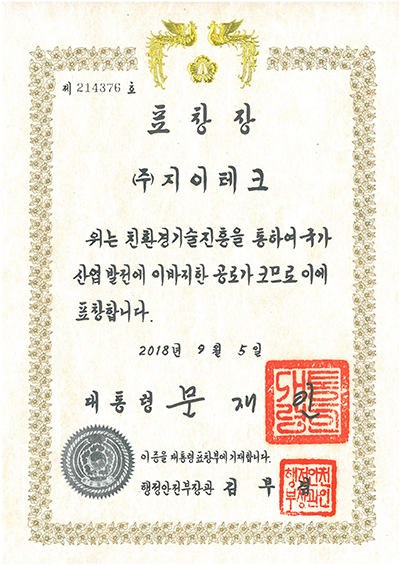 제 214376 호
표창장
㈜지이테크
위는 친환경기술진흥을 통하여 국가
산업 발전에 이바지한 공로가 크므로 이에
표창합니다.
2018년 9월 5일
대통령 문재인
이 증을 대통령 표창부에 기재합니다.
행정안전부장관 김부겸